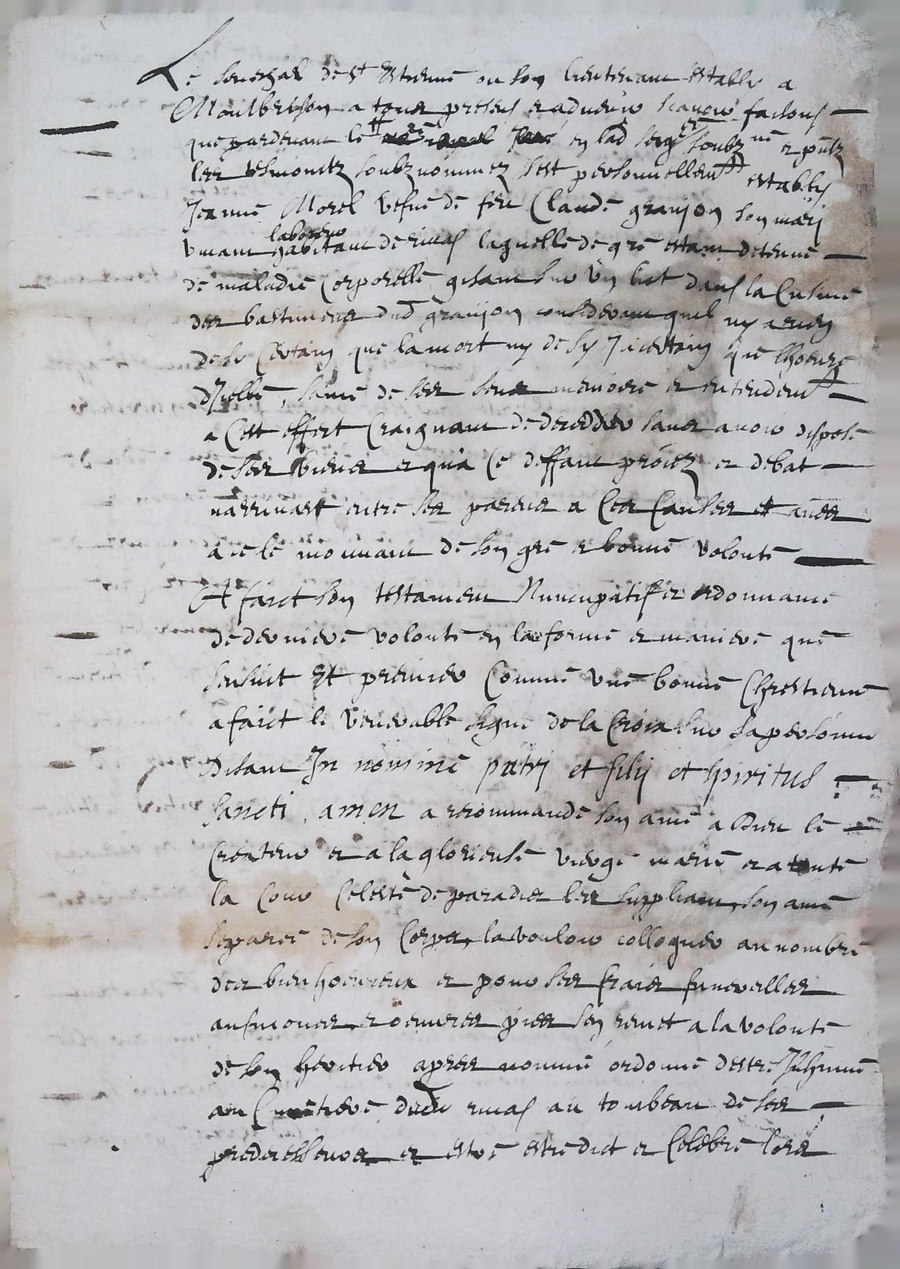 Le seneschal de st Estienne ou son lieutenant estably a
Montbrison a tous presens et advenir scavoir faisons
que pardevant le en lad soubz ne et pntz
les tesmointz soubznommez sest personnellemt establye
Jeanne Morel vefve de feu Claude granjon son mary
vivant laboureur habitant de rivas laquelle de gre estant detenue
de maladie corporelle gisant sur un lict dans la cuisine
des bastimens dud granjon considerant quil ny a rien
de si certain que la mort ny de sy incertain que lheure
dicelle, saine de ses sens memoire et entendemt
a cest effect craignant de deceder sans avoir dispose
de ses biens et qua ce deffaut proces et debat
narrivast entre ses parens a ces causes et aues
a ce le mouvant de son gre et bonne volonte
A faict son testament nuncupatif et ordonnance
de derniere volonte en la forme et maniere que
sensuit Et premier comme une bonne chrestienne
a faict le venerable signe de la croix sur sa personne
disant In nomine patri et filij et spiritus
sancti, amen a recommande son ame a Dieu le
createur et a la glorieuse vierge marie et a toute
la cour celeste de paradis les suppliant son ame
separee de son corps la vouloir colloquer au nombre
des bienhoeureux et pour ses fraiz funerailles
ausmones et oeuvres pies sen remet a la volonte
de son heritier apres nomme ordonne destre inhumee
au cimetiere dud rivas au tombeau de ses
predecesseurs et estre dict et celebre lors